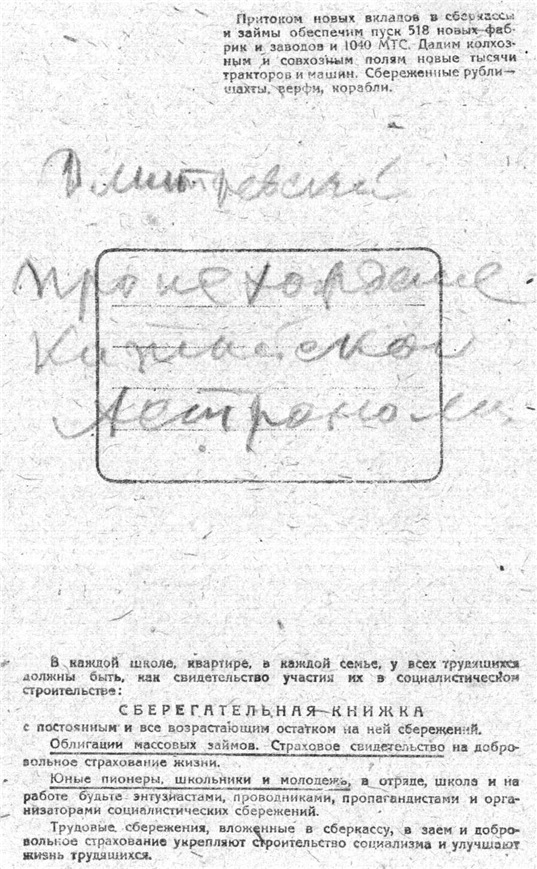 Притоком новых вкладов в сберкассы
и займы обеспечим пуск 518 новых фаб-
рик и заводов и 1040 МТС. Дадим колхоз-
ным и совхозным полям новые тысячи
тракторов и машин. Сбереженные рубли—
шахты, верфи, корабли.
Дмитревский
происхождение
Китайской
Астрономии
В каждой школе, квартире, в каждой семье, у всех трудящихся
должны быть, как свидетельство участия их в социалистическом
строительстве:
СБЕРЕГАТЕЛЬНАЯ КНИЖКА
с постоянным и все возрастающим остатком на ней сбережений.
Облигации массовых займов. Страховое свидетельство на добро-
вольное страхование жизни.
Юные пионеры, школьники и молодежь, в отряде, школе и на
работе будьте энтузиастами, проводниками, пропагандистами и орга-
низаторами социалистических сбережений.
Трудовые сбережения, вложенные в сберкассу, в заем и добро-
вольное страхование укрепляют строительство социализма и улучшают
жизнь трудящихся.